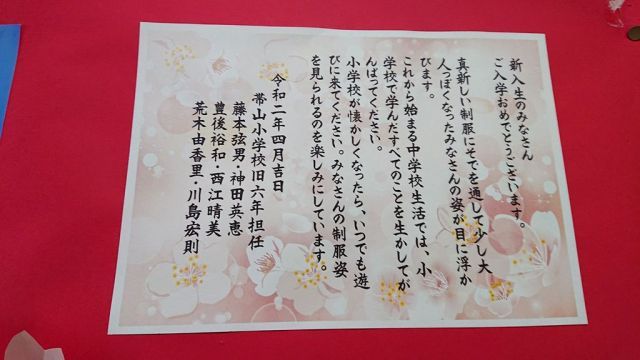 新入生のみなさん
ご入学おめでとうございます。
真新しい制服にそでを通して少し大
人っぽくなったみなさんの姿が目に浮か
びます。
これから始まる中学校生活では、小
学校で学んだすべてのことを生かしてが
んばってください。
小学校が懐かしくなったら、いつでも遊
びに来てください。みなさんの制服姿
を見られるのを楽しみにしています。
令和二年四月吉日
帯山小学校旧六年担任
藤本弦男・神田英恵
豊後裕和・西江晴美
荒木由香里・川島宏則